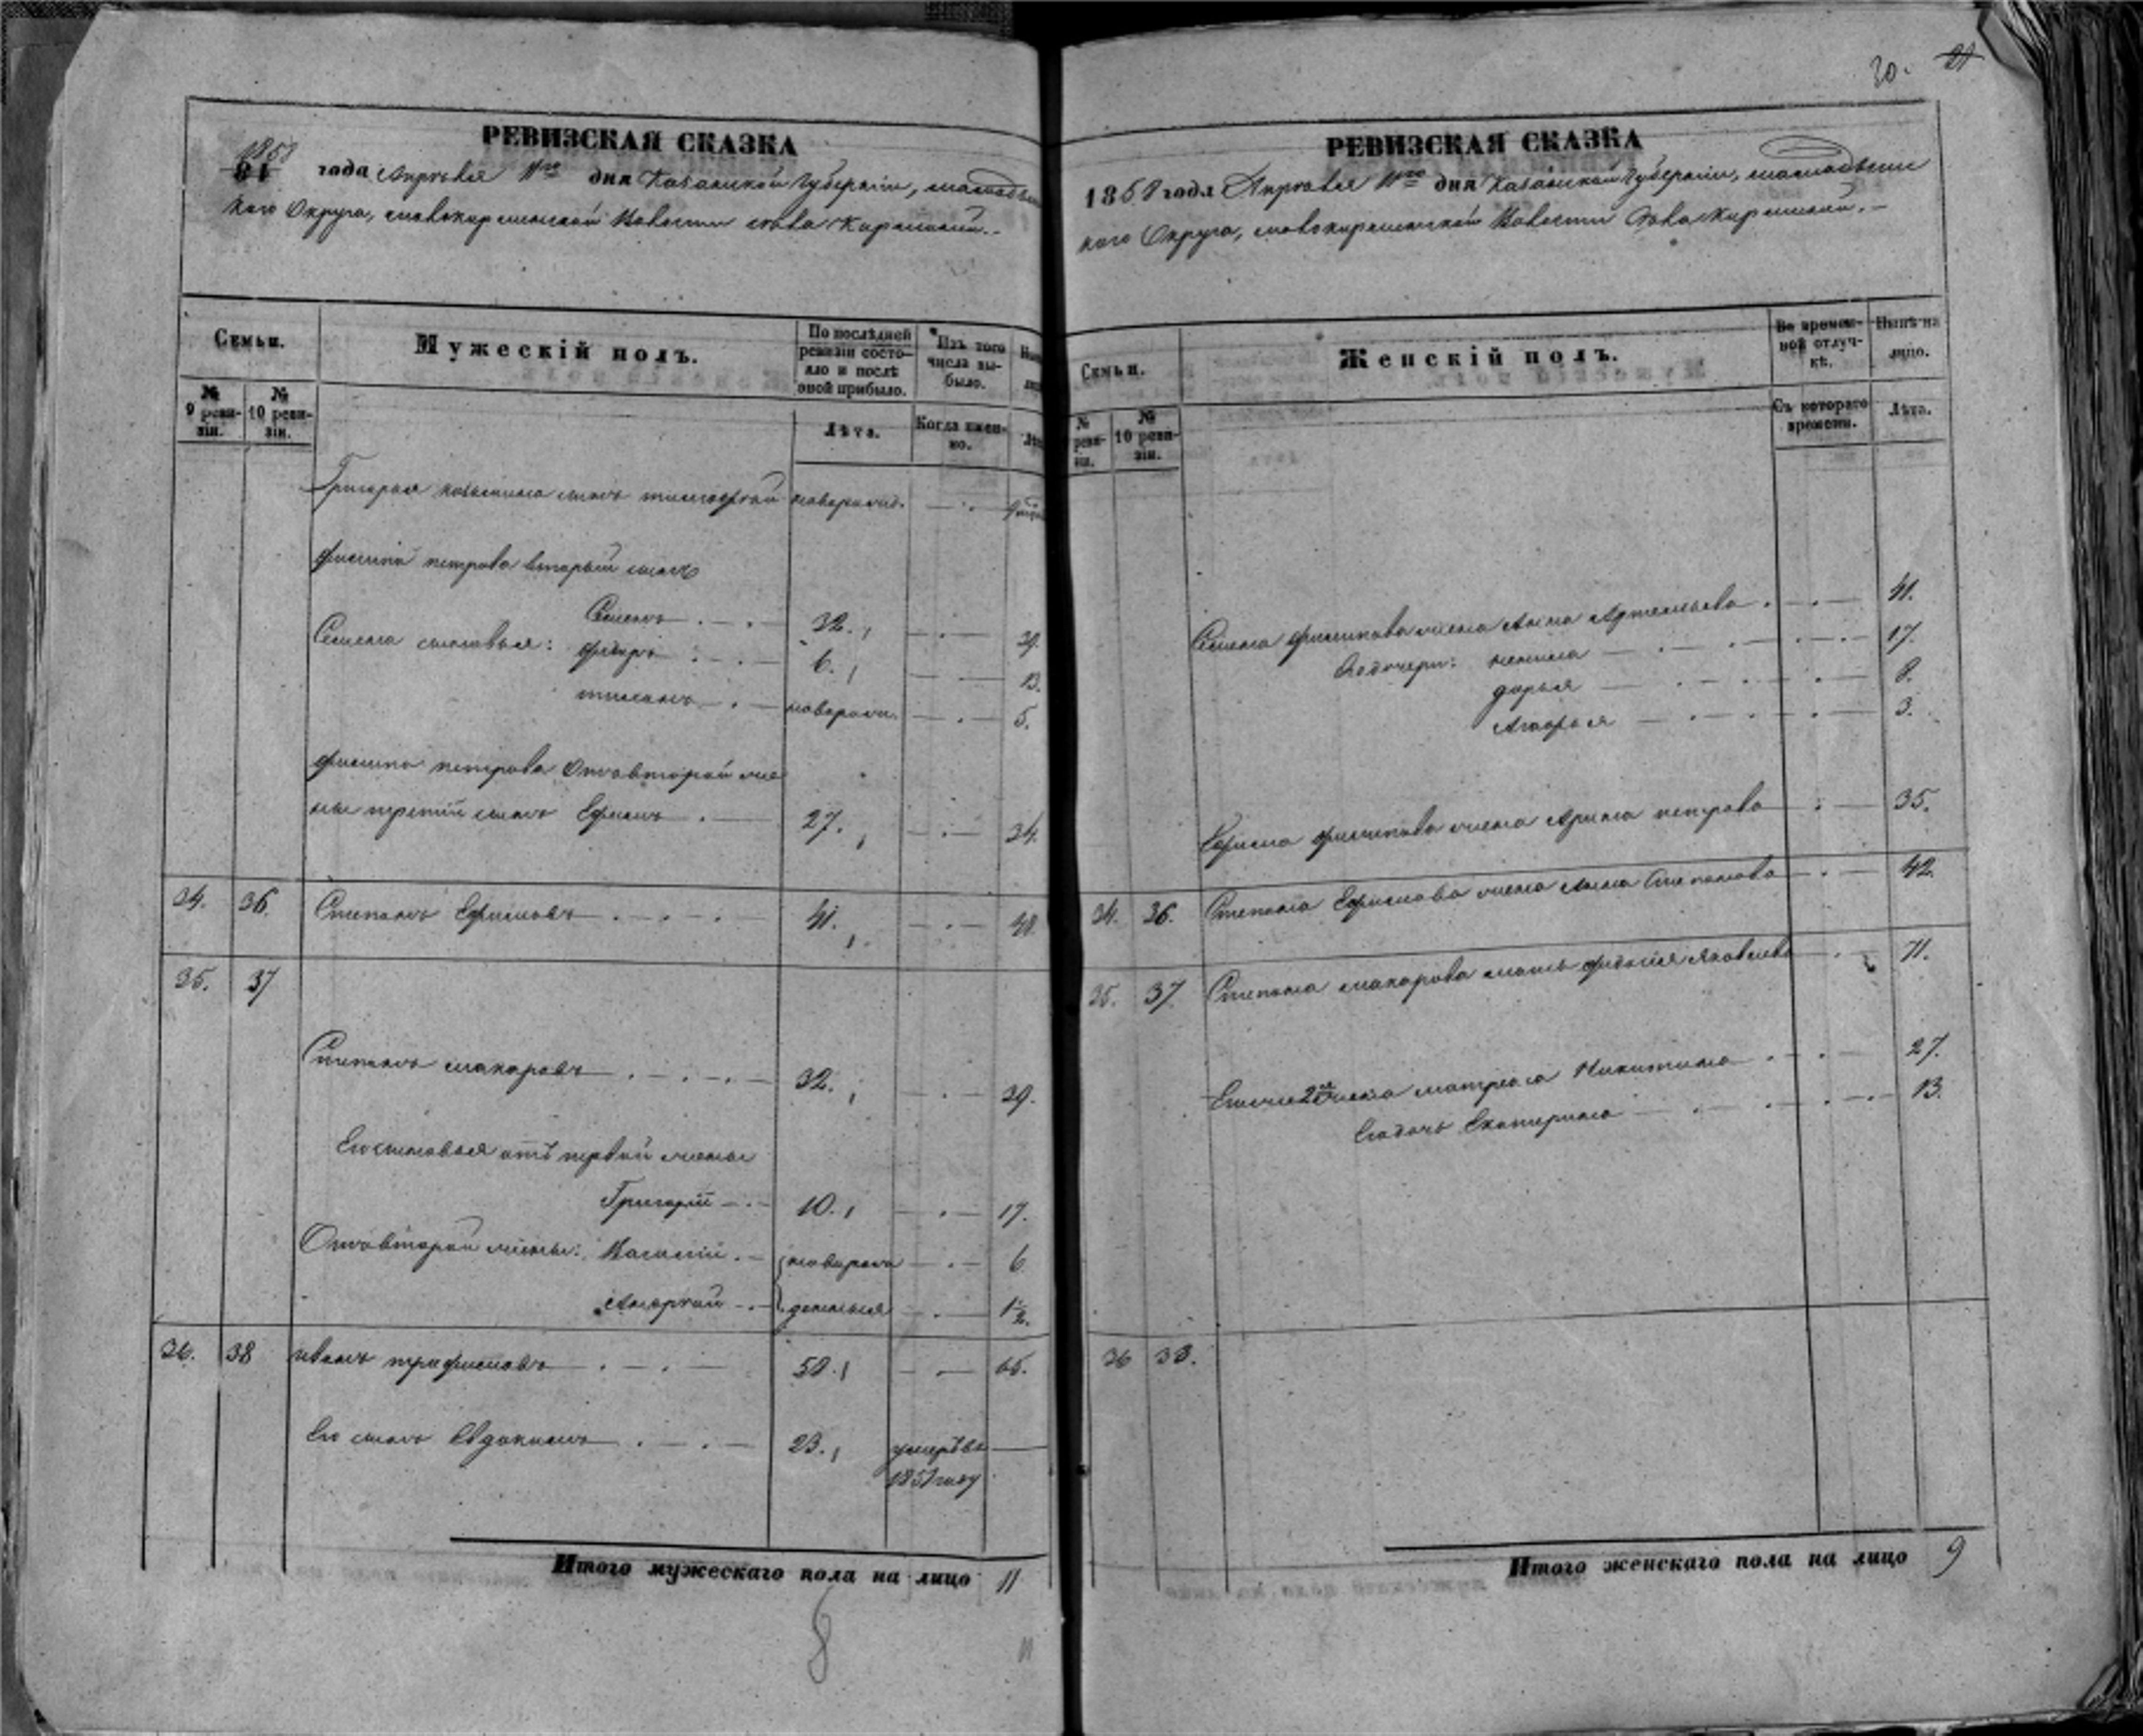 30. 21
РЕВИЗСКАЯ СКАЗКА
1858 года Апреля 11го дня Казанской Губернии,
кого Округа, Волости села
Семьи.
Мужескій полъ.
По послѣдней ревизіи состояло и послѣ оной прибыло.
Изъ того числа выбыло.
№ 9 ревизіи.
№ 10 ревизіи.
Лѣта.
Когда именно.
Григорья сынъ новорожд.
Филипа петрова вторый сынъ
Семенъ 32. 39.
Семена сыновья: Федоръ 6. 13.
новорожд. 5.
Филипа петрова Отовторой же
ны третій сынъ Ефимъ 27. 34.
34. 36. Степанъ Ефимовъ 41. 48.
35. 37
Степанъ макаровъ 32. 39.
Его сыновья отъ первой жены
Григорій 10. 17.
Отовторой жены: Василій новорож 6
Андрей денныя 1½.
36. 38 иванъ 58. 65.
Его сынъ Евдокимъ 23. умеръ въ
1851 году
Итого мужескаго пола на лицо 11
8
11
РЕВИЗСКАЯ СКАЗКА
1858 года Апреля 11го дня Казанской Губернии,
кого Округа, Волости Села
Семьи.
Женскій полъ.
Во временной отлучкѣ.
Нынѣ на лицо.
№ ревизіи.
№ 10 ревизіи.
Съ котораго времени.
Лѣта.
Семена филипова жена Анна Артемьева 41.
Ево дочери: 17.
дарья 8.
3.
Ефима филипова жена Арина петрова 35.
34. 36. Степана Ефимова жена Анна Степанова 42.
35. 37. Степана макарова мать федосья Яковлева 71.
2я жена матрена Никитина 27.
Ево дочь Екатерина 13.
36 38.
Итого женскаго пола на лицо 9